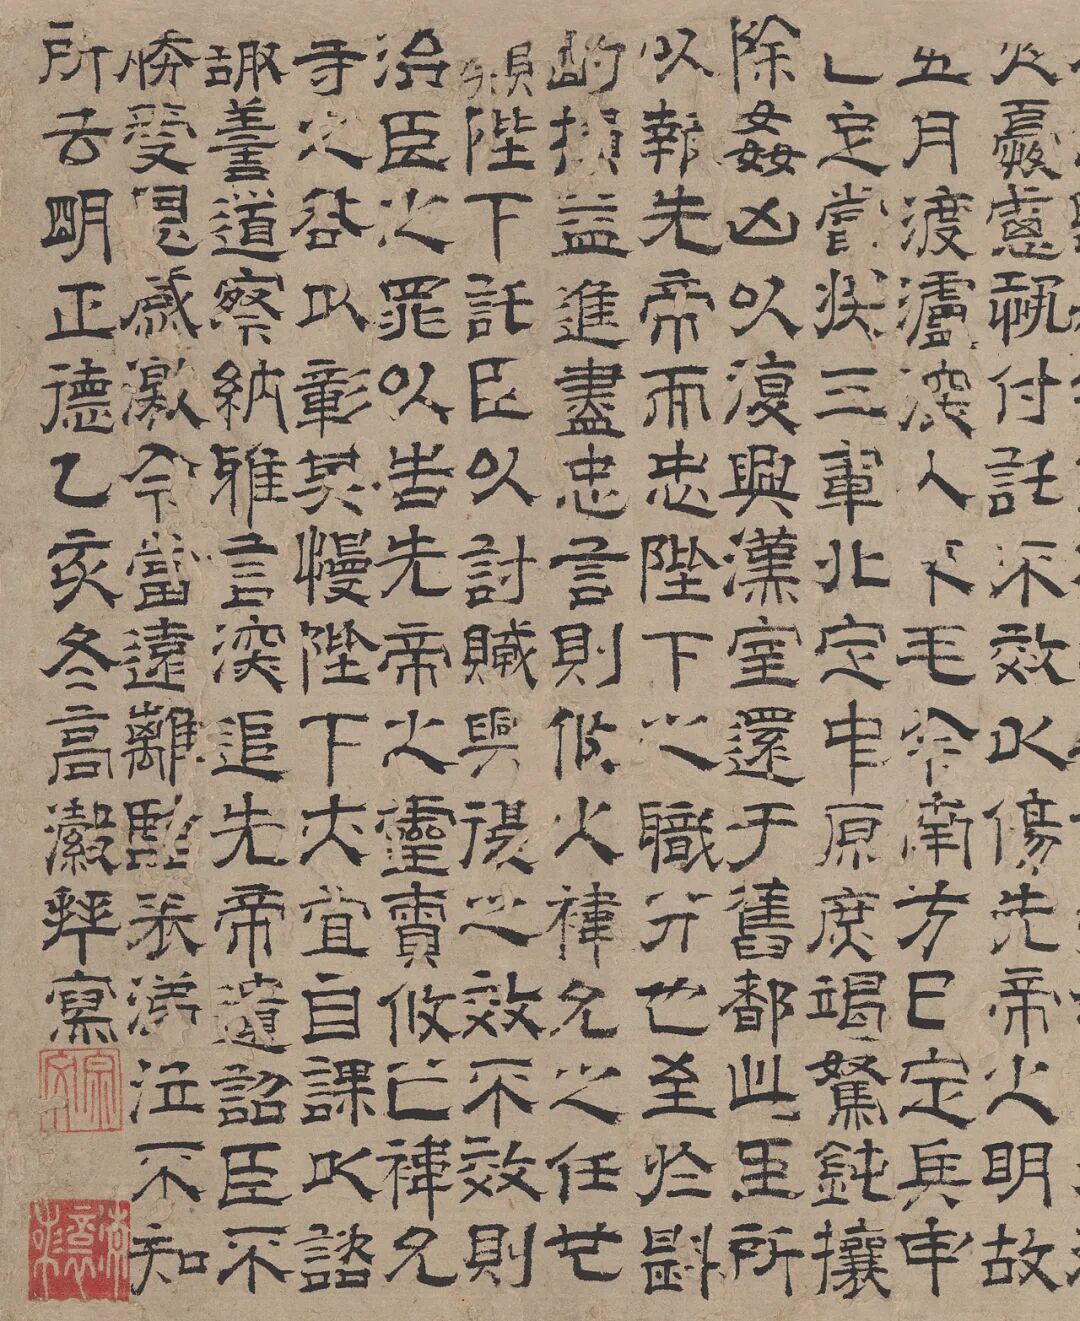 憂慮恐付託不效以傷先帝之明故
五月渡瀘深入不毛今南方已定兵甲
已定當獎三軍北定中原庶竭駑鈍攘
除姦凶以復興漢室還于舊都此臣所
以報先帝而忠陛下之職分也至於斟
酌損益進盡忠言則攸之禕允之任也
願陛下託臣以討賊興復之效不效則
治臣之罪以告先帝之靈責攸之禕允
等之咎以彰其慢陛下亦宜自課以諮
諏善道察納雅言深追先帝遺詔臣不
勝受恩感激今當遠離臨表涕泣不知
所云明正德乙亥冬高瀔拜寫